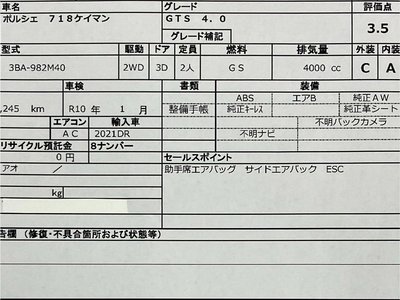 車名 グレード 評価点
ポルシェ 718ケイマン GTS 4.0 3.5
グレード補記
型式 駆動 ドア 定員 燃料 排気量 外装 内装
3BA-982M40 2WD 3D 2人 GS 4000 cc C A
車検 書類 装備
ABS エアB 純正AW
,245 km R10 年 1 月 整備手帳 純正ｷｰﾚｽ 純正革シート
エアコン 輸入車 不明バックカメラ
AC 2021DR 不明ナビ
リサイクル預託金 8ナンバー セールスポイント
0円 助手席エアバッグ サイドエアバック ESC
アオ /
kg
告欄 (修復・不具合箇所および状態等)